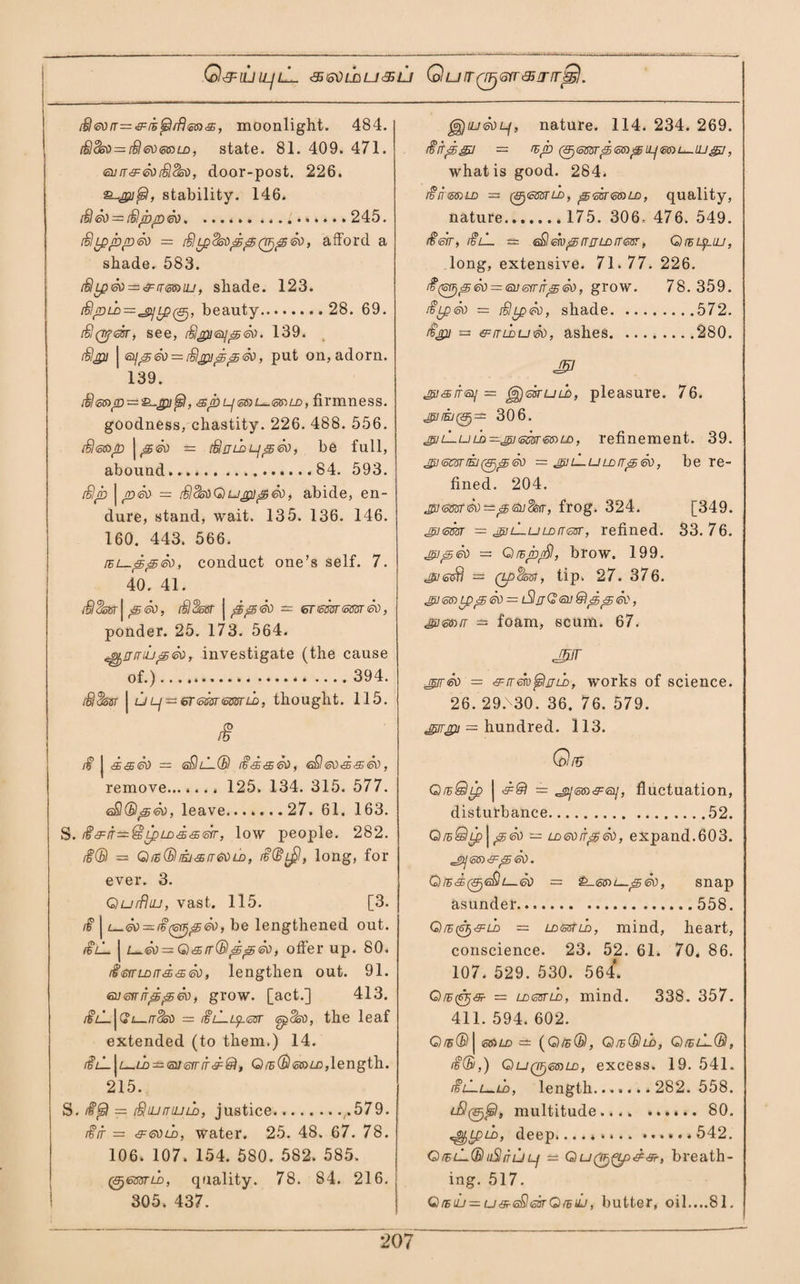 செய்யுட் கலம்பகப் பொருளகராதி.
நிலா=சந்திரிகை, moonlight. 484.
நிலை=நிலைமை, state. 81. 409. 471.
வாசல்நிலை, door-post. 226.
உறுதி, stability. 146.
நில்=நிற்றல். ................245.
நிழற்றல் = நிழலைத்தருதல், afford a
shade. 583.
நிழல்=சாயை, shade. 123.
நிறம்=அழகு, beauty.........28. 69.
நிறுன், see, நிறுவுதல். 139.
நிறு | வுதல்=நிறுத்தல், put on, adorn.
139.
நிறை=உறுதி, கற்புடைமை, firmness.
goodness, chastity. 226. 488. 556.
நிறை | தல் = நிரம்புதல், be full,
abound................84. 593.
நிற் | றல் = நிலைபெறுதல், abide, en-
dure, stand, wait. 135. 136. 146.
160. 443. 566.
நடத்தல், conduct one's self. 7.
40. 41.
நினை | தல், நினை | த்தல் = எண்ணல்,
ponder. 25. 173. 564.
ஆராய்தல், investigate (the cause
of.)......................394.
நினை | ப்பு=எண்ணம், thought. 115.
நீ
நீ | க்கல் = விட்டு நீக்கல், விலக்கல்,
remove....... 125. 134. 315. 577.
விடுதல், leave.......27. 61. 163.
S. நீசர்=கீழ்மக்கள், low people. 282.
நீடு = நெடுங்காலம், நீடூழி, long, for
ever. 3.
பெரிய, vast. 115. [3.
நீ | டல்=நீளுதல், be lengthened out.
நீட் | டல்=கொடுத்தல், offer up. 80.
நீளமாக்கல், lengthen out. 91.
வளர்த்தல், grow. [act.] 413.
நீட்|டோலை = நீட்டின ஓலை, the leaf
extended (to them.) 14.
நீட்|டம்=வளர்ச்சி, நெடுமை,length.
215.
S. நீதி = நியாயம், justice.........579.
நீர் = சலம், water. 25. 48. 67. 78.
106. 107. 154. 580. 582. 585.
குணம், quality. 78. 84. 216.
305. 437.
இயல்பு, nature. 114. 234. 269.
நீர்த்து = நற் குணத்தையுடையது,
what is good. 284.
நீர்மை = குணம், தன்மை, quality,
nature.......175. 306. 476. 549.
நீள், நீட் = விஸ்தாரமான, நெடிய,
long, extensive. 71. 77. 226.
நீளுதல்=வளர்தல், grow. 78. 359.
நீழல் = நிழல், shade..........572.
நீறு = சாம்பல், ashes.........280.
நு
நுகர்வு = இன்பம், pleasure. 76.
நுங்கு= 306.
நுட்பம்=நுண்மை, refinement. 39.
நுணங்குதல் = நுட்பமாதல், be re-
fined. 204.
நுணல்=தவளை, frog. 324. [349.
நுண் = நுட்பமான, refined. 33. 76.
நுதல் = நெற்றி, brow. 199.
நுனி = முனை, tip. 27. 376.
நுழைதல்=பிரவேசித்தல்,
நுரை = foam, scum. 67.
நூ
நூல் = சாஸ்திரம், works of science.
26. 29. 30. 36. 76. 579.
நூறு = hundred. 113.
நெ
நெகிழ் | ச்சி = அசைவு, fluctuation,
disturbance...................52.
நெகிழ் | தல் = மலர்தல், expand.603.
அசைதல்.
நெக்குவிடல் = உடைதல், snap
asunder....................558.
நெஞ்சம் = மனம், mind, heart,
conscience. 23. 52. 61. 70. 86.
107. 529. 530. 564.
நெஞ்சு = மனம், mind. 338. 357.
411. 594. 602.
நெடு | மை = (நெடு, நெடும், நெட்டு,
நீடு,) பெருமை, excess. 19. 541.
நீட்டம், length.......282. 558.
மிகுதி, multitude.... ...... 80.
ஆழம், deep..............542.
நெட்டுயிர்ப்பு = பெருமூச்சு, breath-
ing. 517.
நெய்=பசுவின்நெய், butter, oil....81.
207